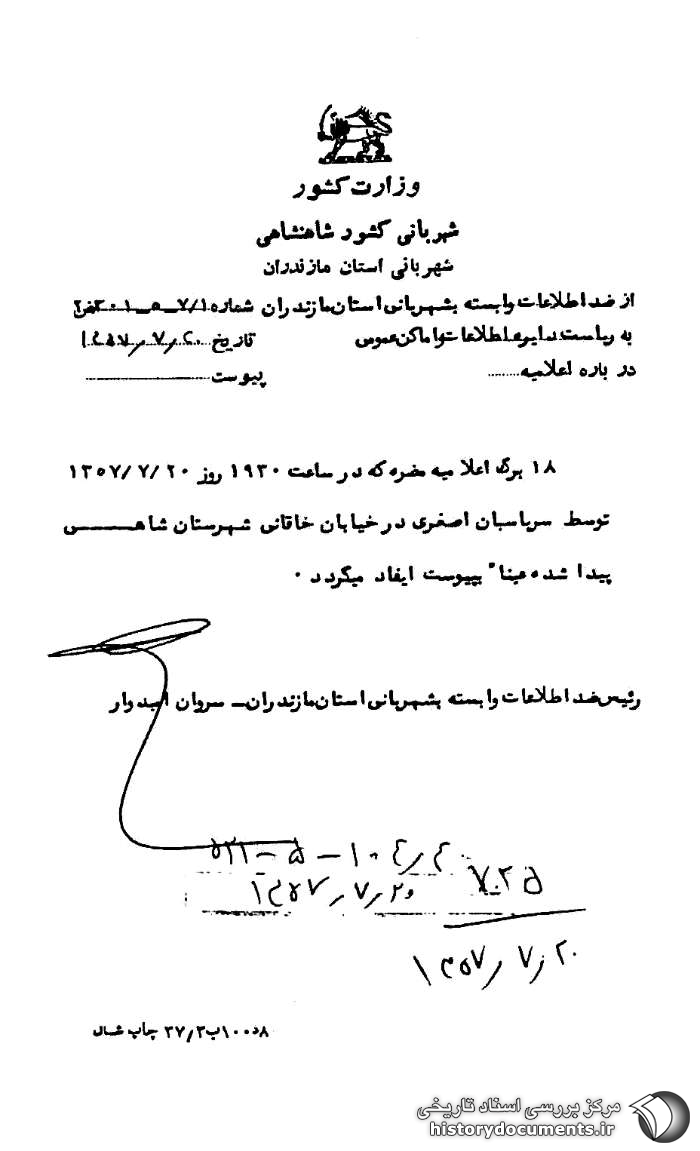 وزارت کشور
شهربانی کشور شاهنشاهی
شهربانی استان مازندران
از ضد اطلاعات وابسته بشهربانی استان مازندران شماره
به ریاست دایره اطلاعات و اماکن عمومی تاریخ ۱۳۵۷/۷/۲۰
در باره اعلامیه......... پیوست
۱۸ برگ اعلامیه مضره که در ساعت ۱۹۳۰ روز ۱۳۵۷/۷/۲۰
توسط سرپاسبان اصغری در خیابان خاقانی شهرستان شاهی
پیدا شده عینا" بپیوست ایفاد میگردد .
رئیس ضد اطلاعات وابسته بشهربانی استان مازندران ـ سروان امیدوار
۵ – ۱۰۴/۴
۱۳۵۷/۷/۲۰ ۷۰۲۵
۱۳۵۷/۷/۲۰
چاپ شمال
مرکز بررسی اسناد تاریخی
historydocuments.ir